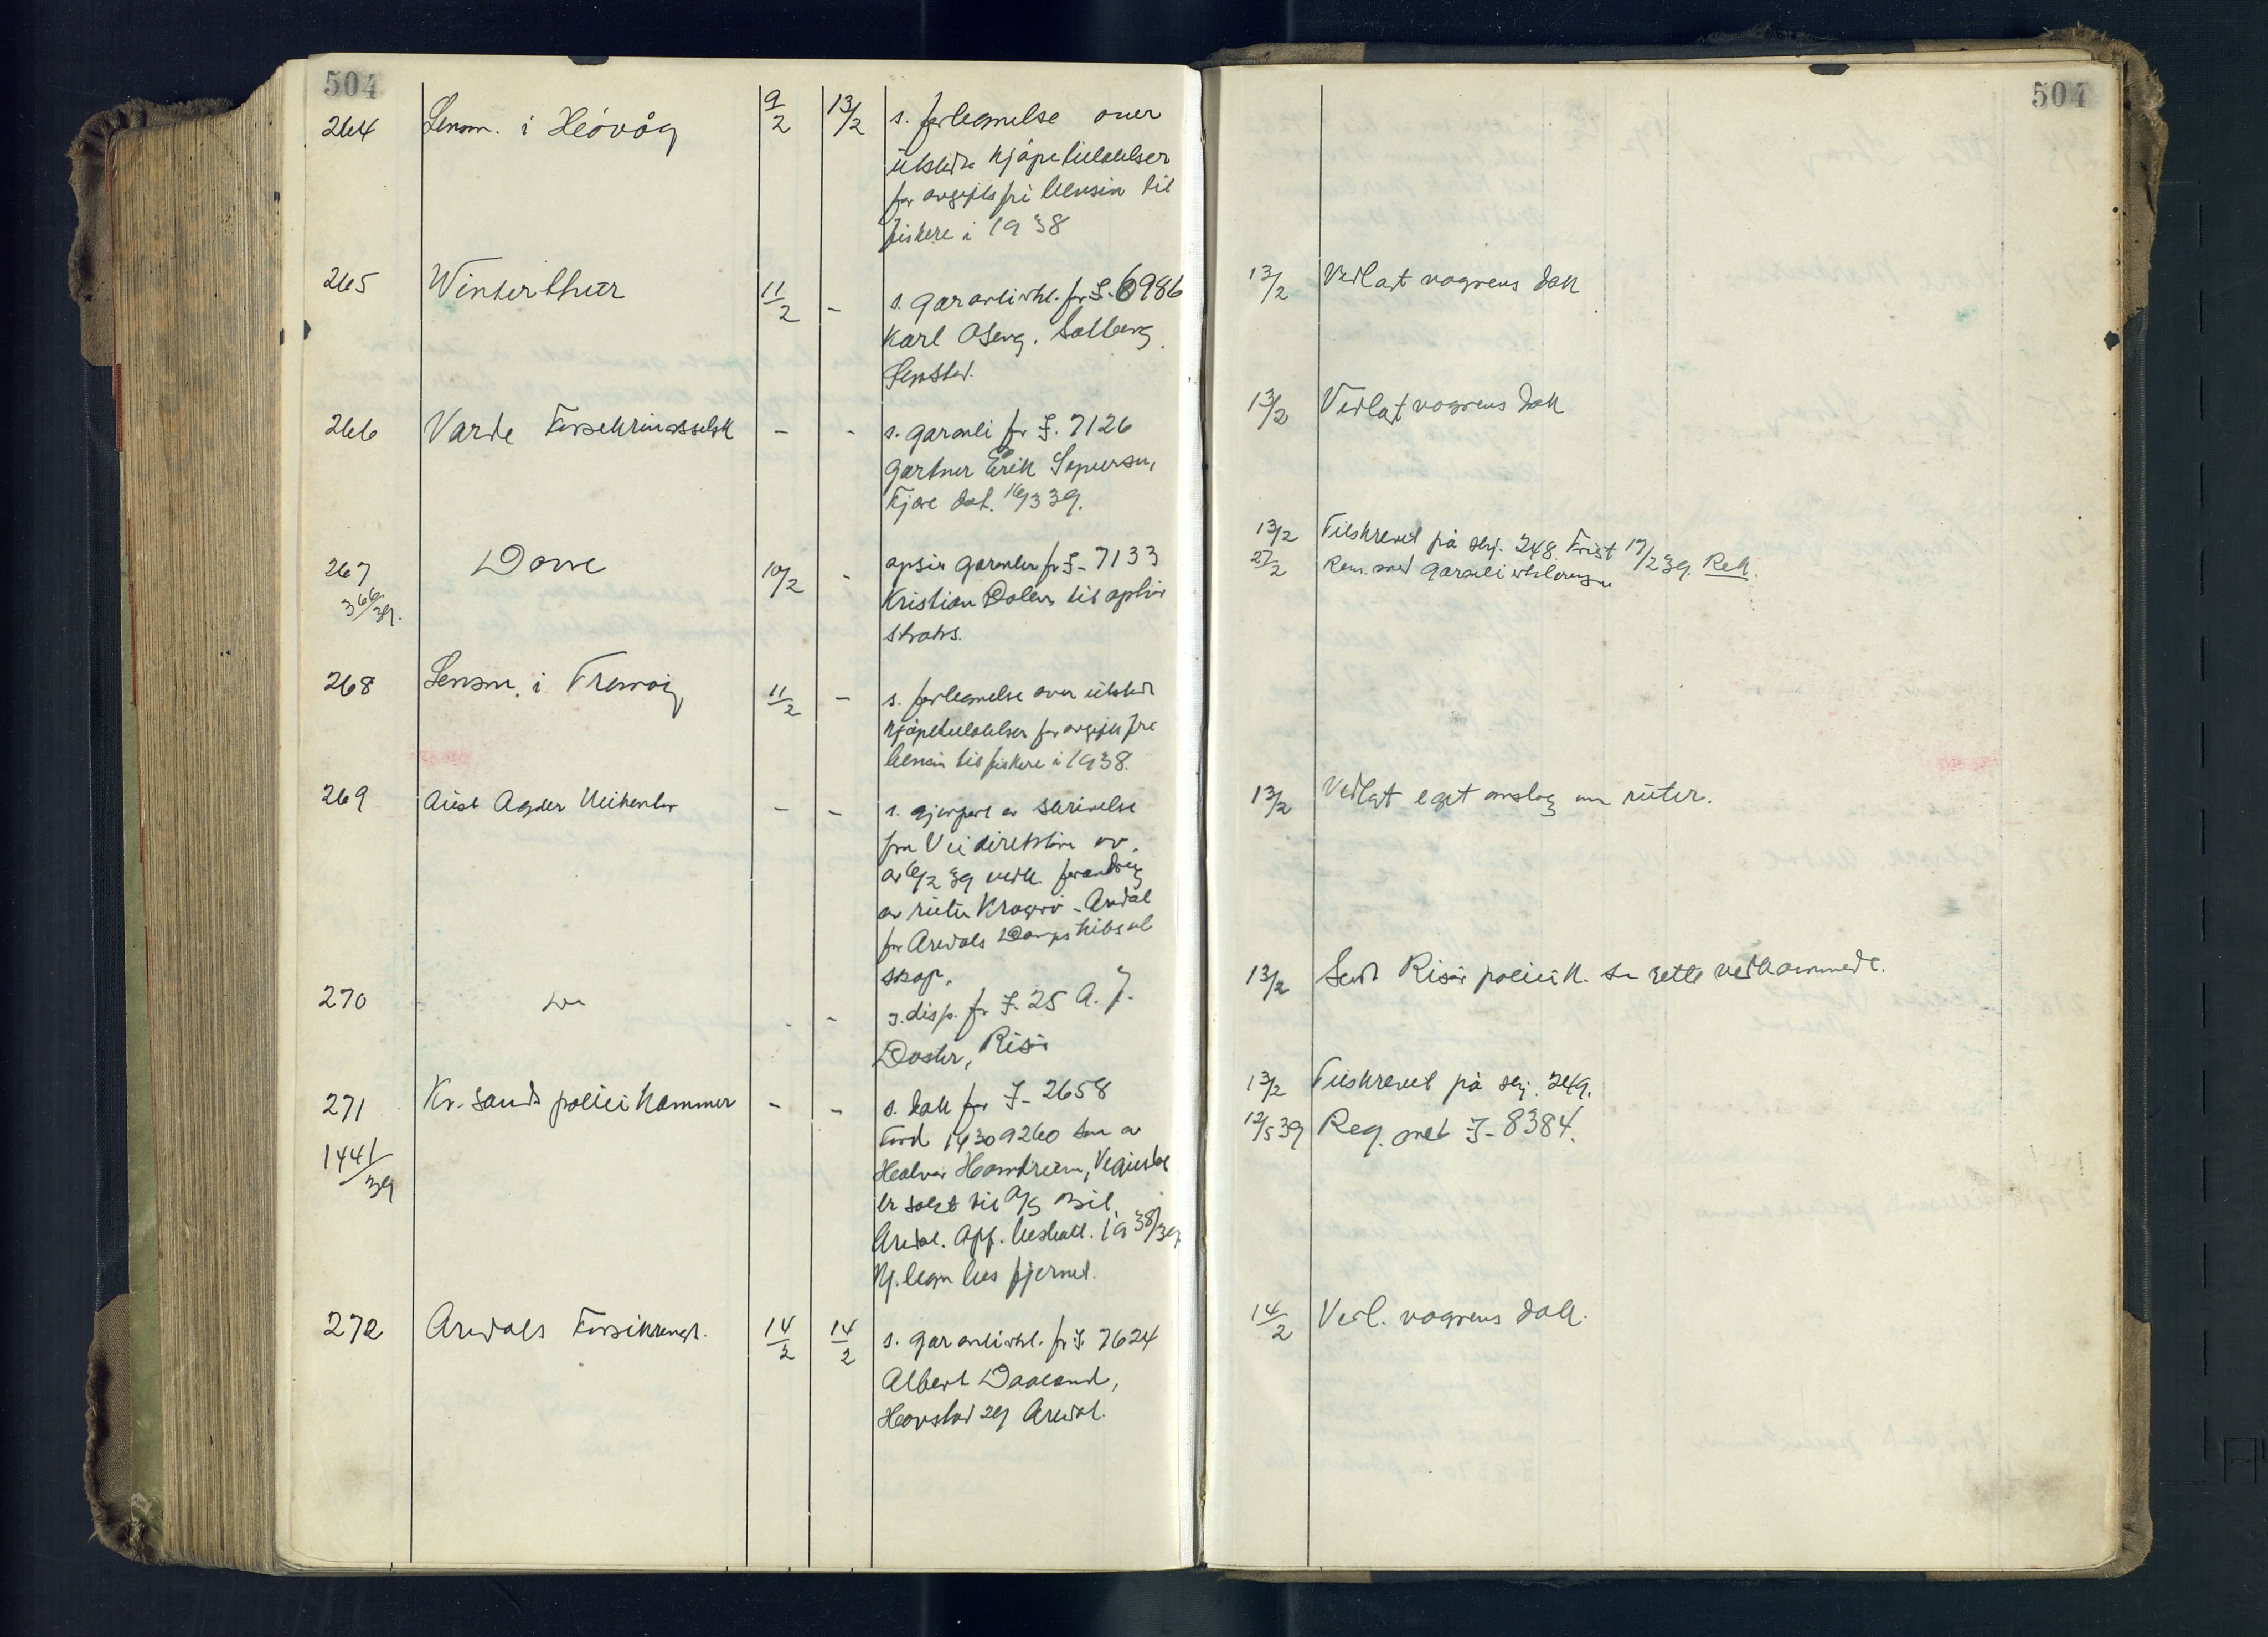 504
264 Lensm. i Hövåg 9/2 13/2 s. fortegnelse over
utstedte kjöpetillatelser
for avgiftsfri bensin til
fiskere i 1938
265 Winterthur 11/2 - s. garantierkl. for I-6986
Karl Oserg. Solberg
266 Varde Forsikringsselsk - - s. garanti for I. 7126
gartner Erik
Fjære dat. 16/3 39.
267 Dovre 10/2 - opsier garantien for I-7133
366/39. Kristian Dolen til ophör
straks.
268 Lensm. i Tromöy 11/2 - s. fortegnelse over utstedte
kjöpetillatelser for avgiftsfri
bensin til fiskere i 1938.
269 Aust Agder Veikontor - - s. gjenpart av skrivelse
fra Veidirektören
av 6/2 39 vedk. forandring
av ruten Kragerö - Arendal
for Arendals Dampskibssel
skap.
270 do - - s. disp. for I-25 A. J.
Doster, Risör
271 Kr.sands politikammer - - s. dok for I-2658
1441/39 Ford 1430 9260 som av
Halvor Hamdreim, Vegusdal
er solgt til A/S Bil,
Arendal. Avg. betalt 1938/39
Kj.tegn bes fjernet.
272 Arendals Forsikringss. 14/2 14/2 s. garantierkl. for I 7624
Albert Daaland,
Havstad 29 Arendal.
504
13/2 Vedlagt vognens dok
13/2 Vedlagt vognens dok
13/2 Tilskrevet på skj. 248. Frist 17/2 39. Rek.
27/2 Rem. med garantierklæringen
13/2 Vedlagt eget omslag om ruter.
13/2 Sendt Risör politik. som rette vedkommende.
13/2 Tilskrevet på skj. 249.
12/5 39 Reg. med I-8384.
14/2 Vedl. vognens dok.